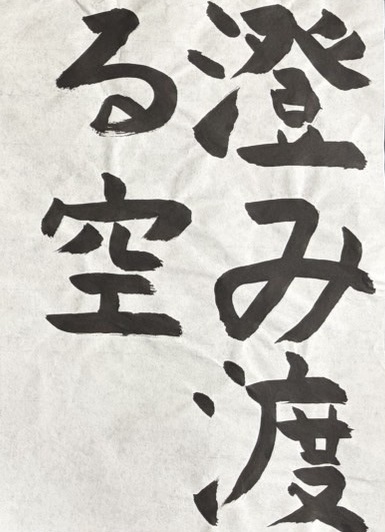 澄み渡
る空